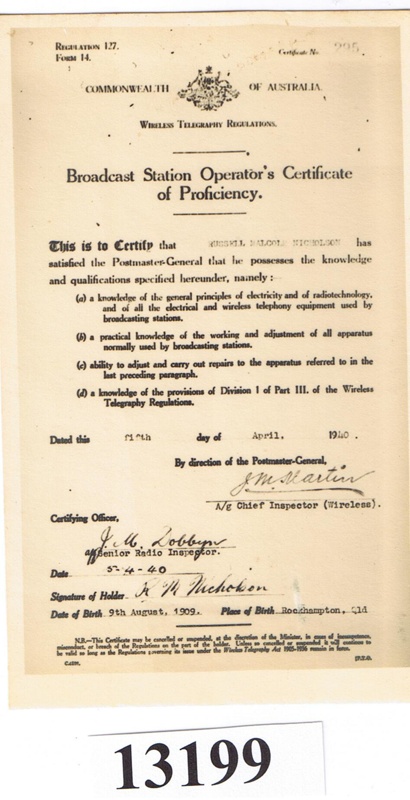 Regulation 127.
Form 14.
Certificate No.
COMMONWEALTH OF AUSTRALIA.
Wireless Telegraphy Regulations.
Broadcast Station Operator's Certificate
of Proficiency.
This is to Certify that RUSSELL MALCOLM NICHOLSON has
satisfied the Postmaster-General that he possesses the knowledge
and qualifications specified hereunder, namely:—
(a) a knowledge of the general principles of electricity and of radiotechnology,
and of all the electrical and wireless telephony equipment used by
broadcasting stations.
(b) a practical knowledge of the working and adjustment of all apparatus
normally used by broadcasting stations.
(c) ability to adjust and carry out repairs to the apparatus referred to in the
last preceding paragraph.
(d) a knowledge of the provisions of Division I of Part III. of the Wireless
Telegraphy Regulations.
Dated this fifth day of April, 1940.
By direction of the Postmaster-General,
J M Martin
A/g Chief Inspector (Wireless).
Certifying Officer,
J. M. Dobbyn
Senior Radio Inspector.
Date 5-4-40
Signature of Holder R M Nicholson
Date of Birth 9th August, 1909. Place of Birth Rockhampton, Qld
N.B.—This Certificate may be cancelled or suspended, at the discretion of the Minister, in cases of incompetence,
misconduct, or breach of the Regulations on the part of the holder. Unless so cancelled or suspended it will continue to
be valid so long as the Regulations governing its issue under the Wireless Telegraphy Act 1905-1936 remain in force.
[P.T.O.
13199